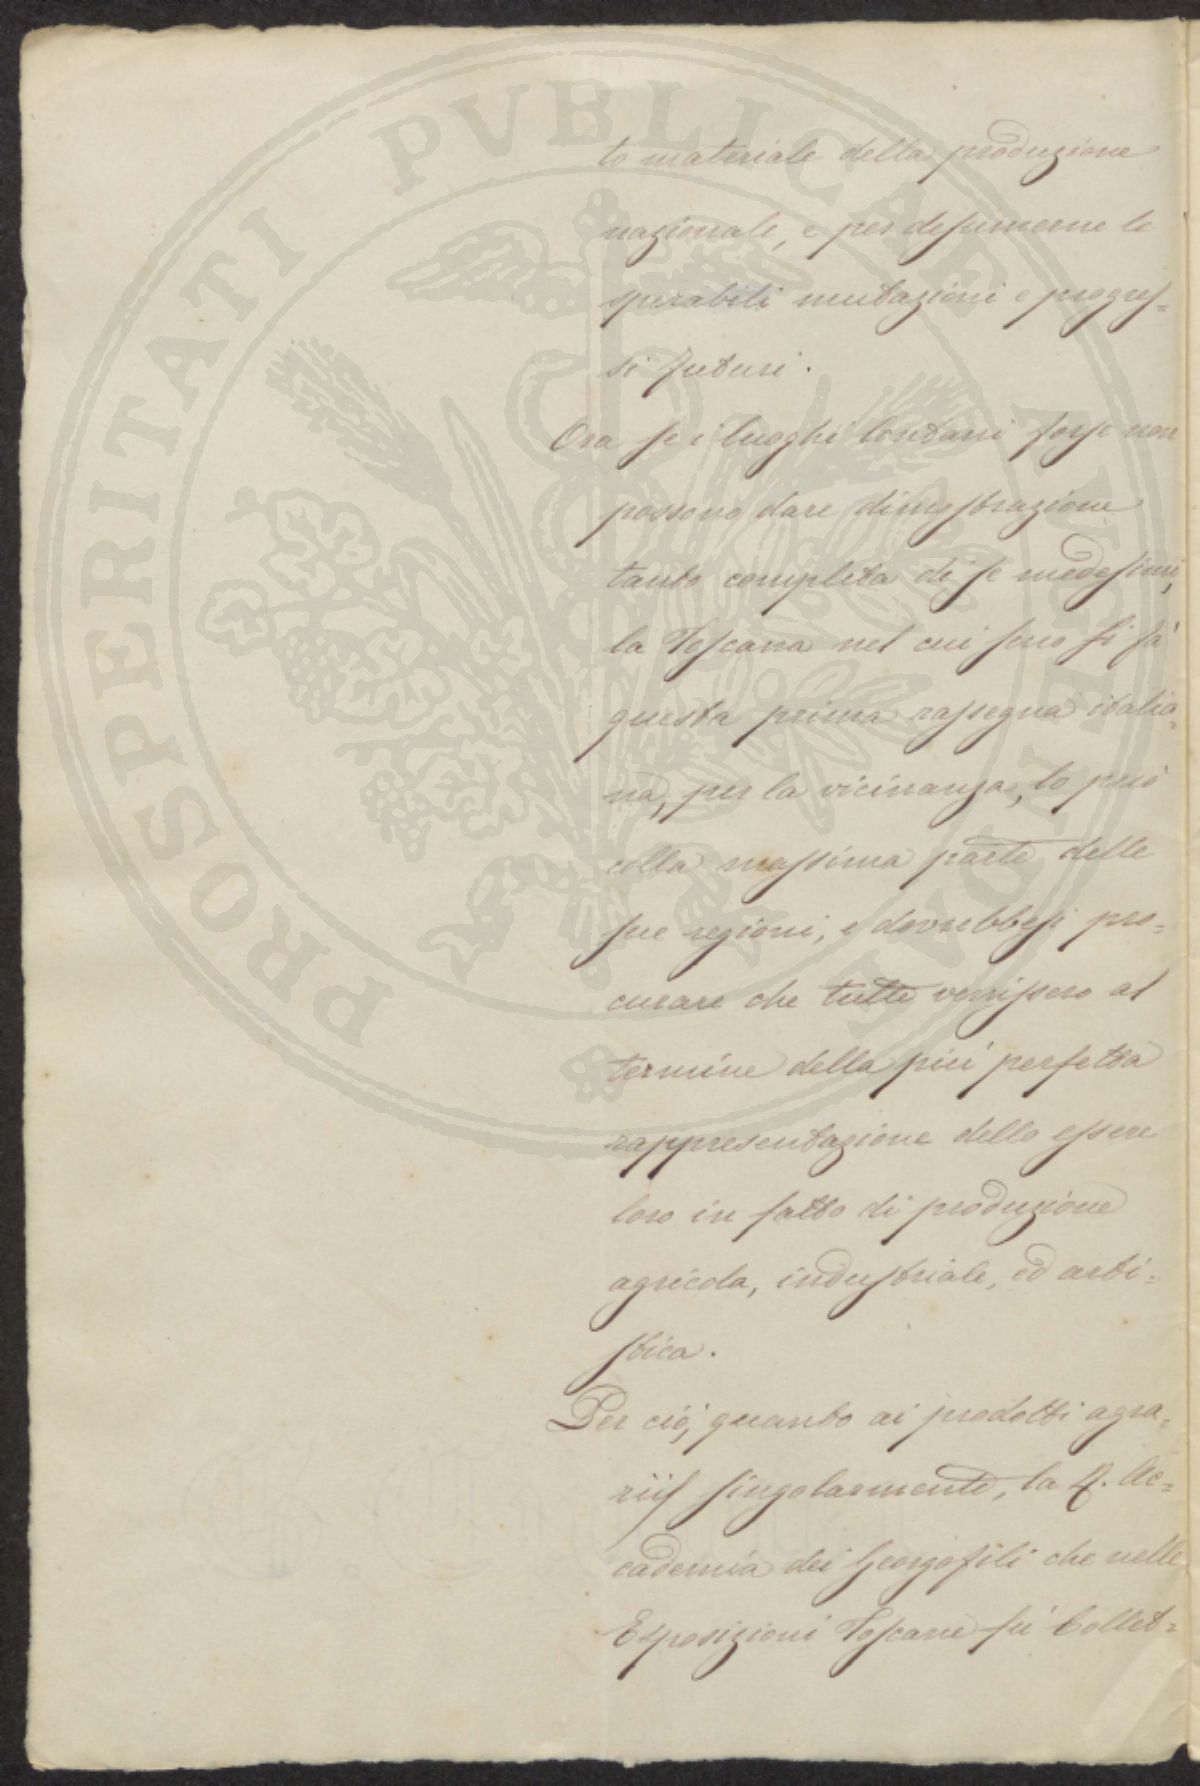 PROSPERITATI PVBLICAE AVGENDAE
to materiale della produzione
nazionale, e per desumerne le
sperabili mutazioni e progres=
si futuri.
Ora se i luoghi lontani forse non
possono dare dimostrazione
tanto completa di se medesimi,
la Toscana nel cui seno si fà
questa prima rassegna italia=
na, per la vicinanza, lo può
colla massima parte delle
sue regioni, e dovrebbesi pro=
curare che tutte venissero al
termine della più perfetta
rappresentazione dello essere
loro in fatto di produzione
agricola, industriale, ed arti=
stica.
Per ciò, quanto ai prodotti agra=
rii singolarmente, la R. Ac=
cademia dei Georgofili che nelle
Esposizioni Toscane fù Collet=